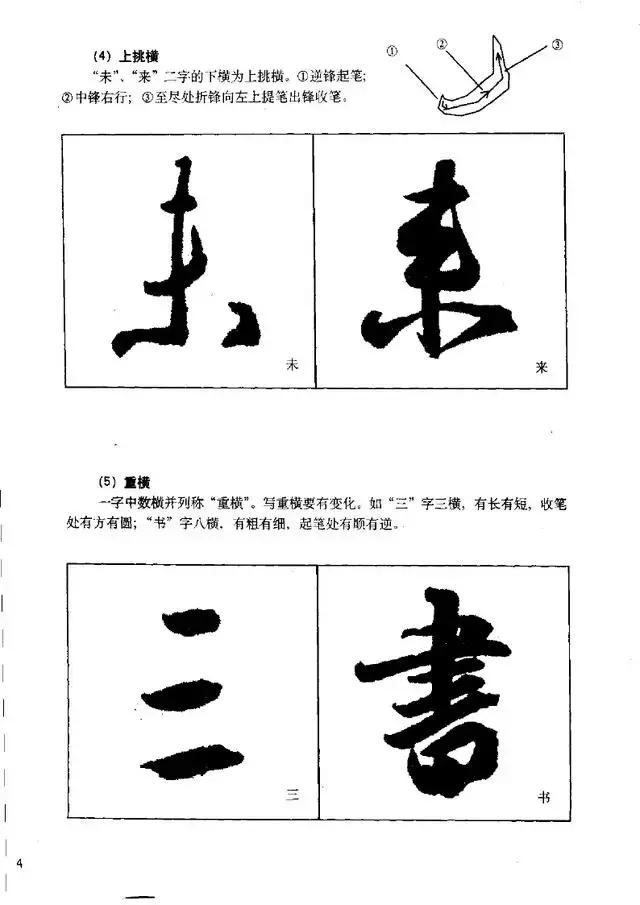 (4) 上挑横
“未”、“来”二字的下横为上挑横。①逆锋起笔;
②中锋右行; ③至尽处折锋向左上提笔出锋收笔。
① ② ③
未 来
未 来
(5) 重横
一字中数横并列称“重横”。写重横要有变化。如“三”字三横, 有长有短, 收笔
处有方有圆; “书”字八横, 有粗有细, 起笔处有顺有逆。
三 書
三 书
4